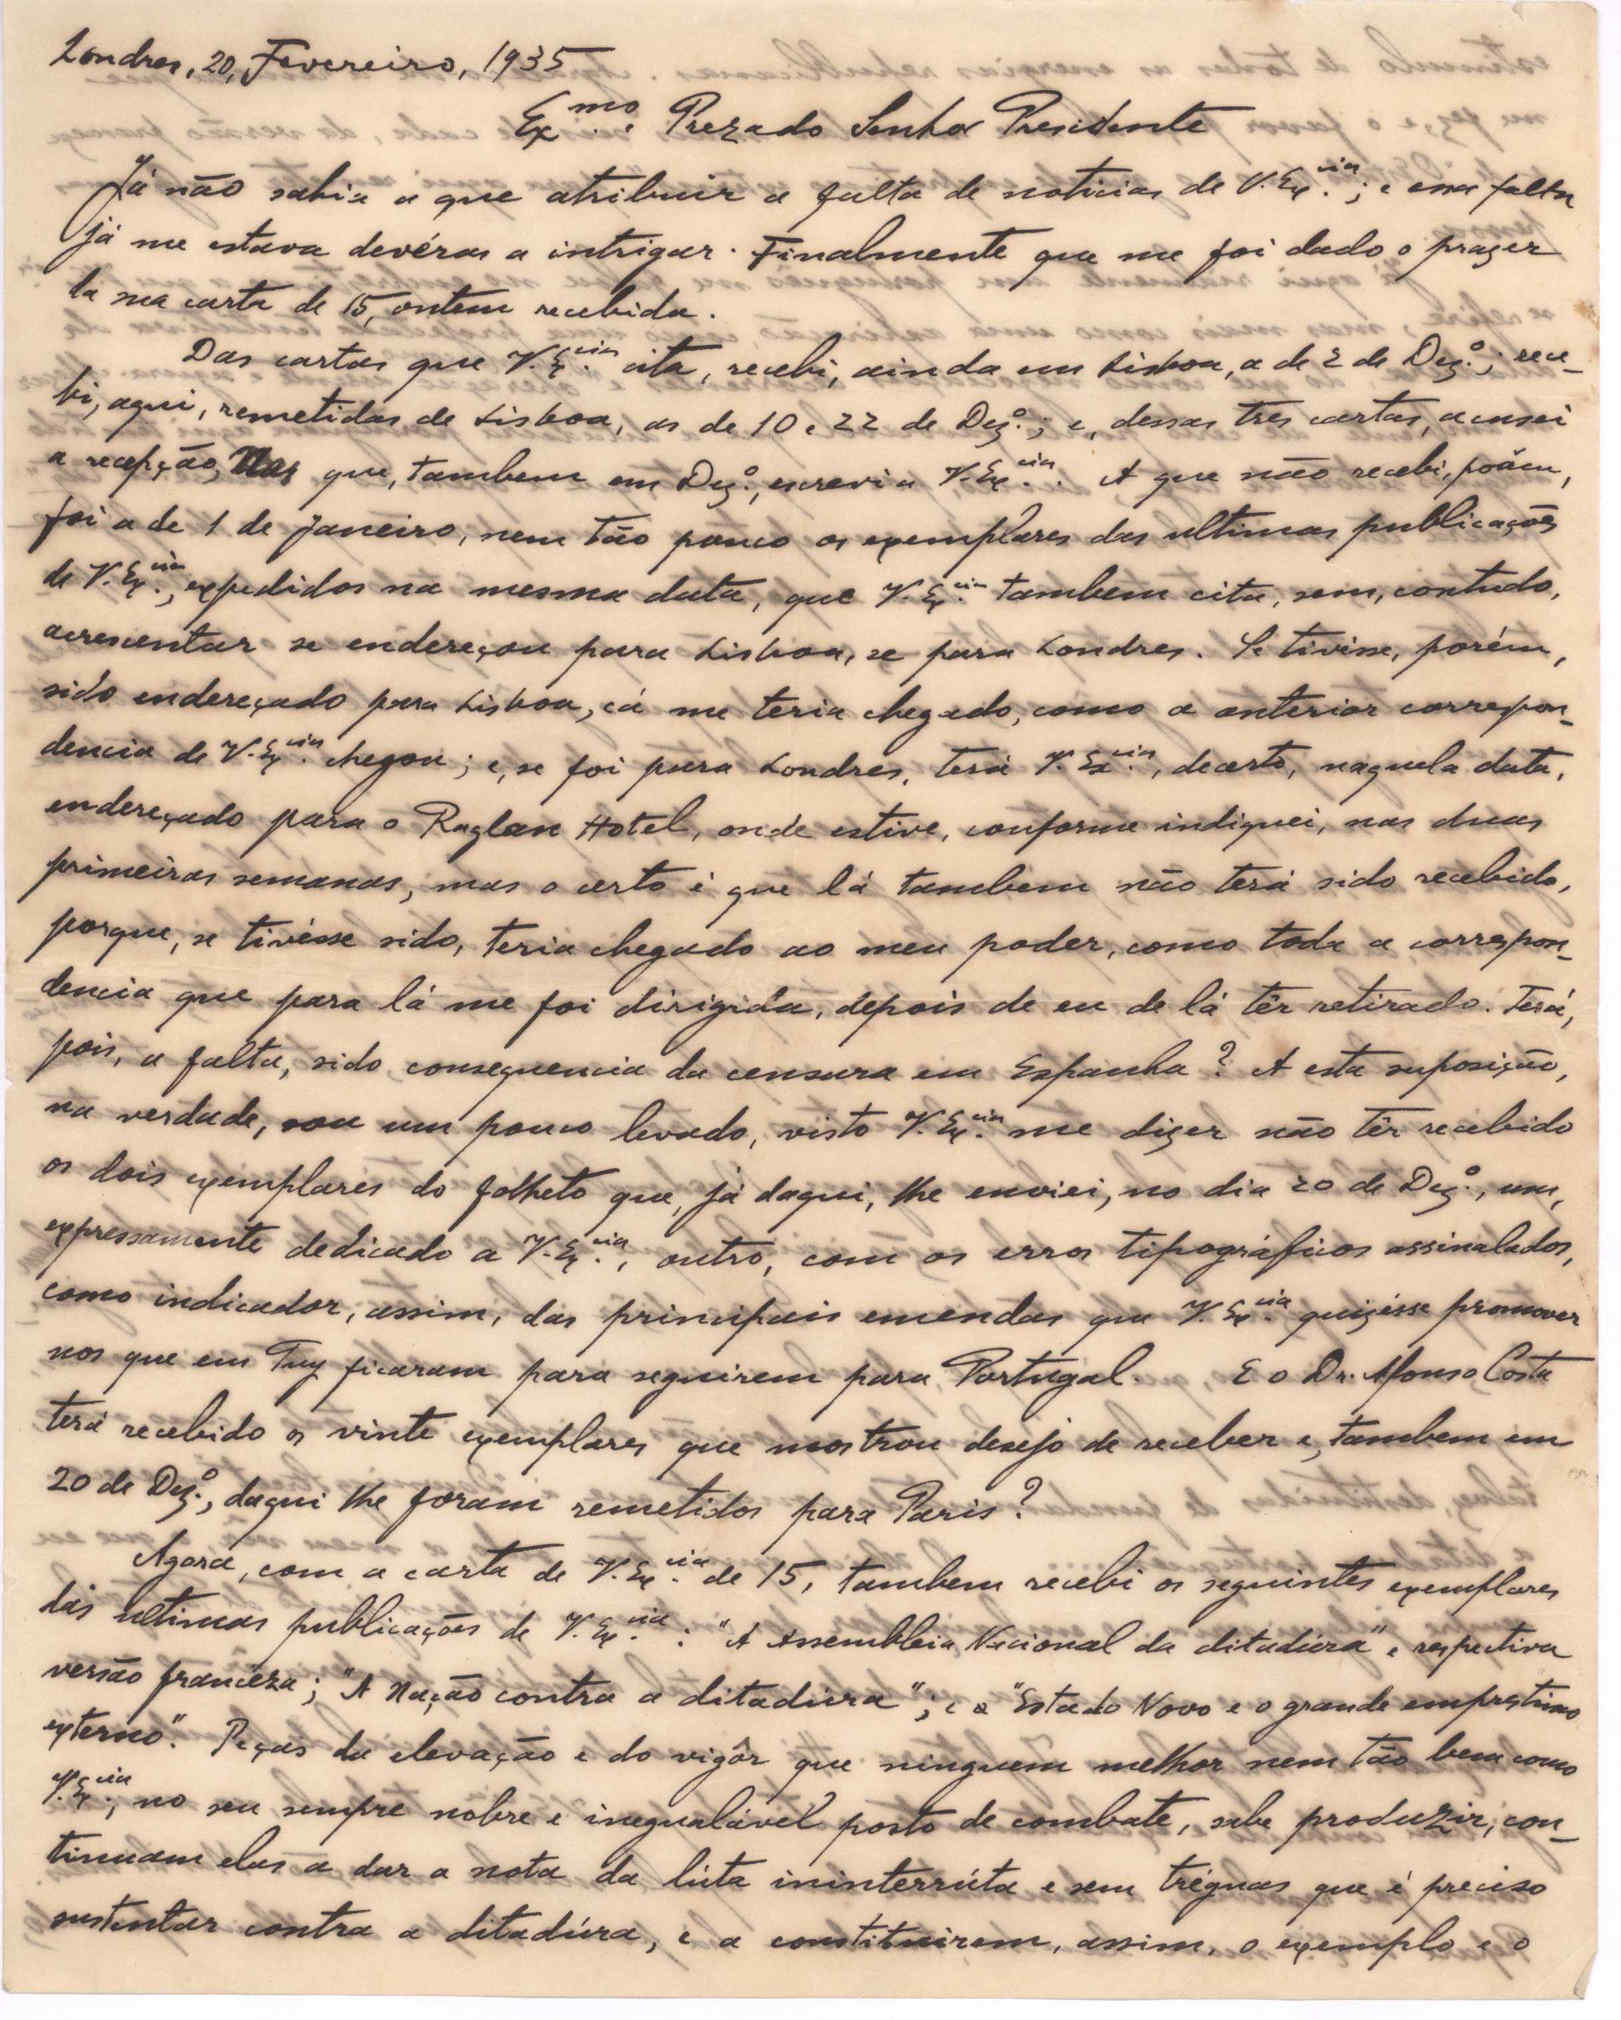 Londres, 20, Fevereiro, 1935
Ex.mo e Prezado Senhor Presidente
Já não sabia a que atribuir a falta de noticias de V. Ex.cia; e essa falta
já me estava devéras a intrigar. Finalmente que me foi dado o prazer
da sua carta de 15, ontem recebida.
Das cartas que V. Ex.cia cita, recebi, ainda em Lisboa, a de 2 de Dez.º; rece-
bi, aqui, remetidas de Lisboa, as de 10 e 22 de Dez.º; e, dessas três cartas, acusei
a recepção, nas que, tambem em Dez.º, escrevi a V. Ex.cia. A que não recebi, porêm,
foi a de 1 de Janeiro, nem tão pouco os exemplares das ultimas publicações
de V. Ex.cia, expedidos na mesma data, que V. Ex.cia tambem cita, sem, contudo,
acrescentar se endereçou para Lisboa, se para Londres. Se tivésse, porém,
sido endereçado para Lisboa, cá me teria chegado, como a anterior correspon-
dencia de V. Ex.cia chegou; e, se foi para Londres, terá V. Ex.cia, decerto, naquela data,
endereçado para o Raglan Hotel, onde estive, conforme indiquei, nas duas
primeiras semanas, mas o certo é que lá tambem não terá sido recebido,
porque, se tivésse sido, teria chegado ao meu poder, como toda a correspon-
dencia que para lá me foi dirigida, depois de eu de lá têr retirado. Terá,
pois, a falta, sido consequencia da censura em Espanha? A esta suposição,
na verdade, sou um pouco levado, visto V. Ex.cia me dizer não têr recebido
os dois exemplares do folheto que, já daqui, lhe enviei, no dia 20 de Dez.º, um,
expressamente dedicado a V. Ex.cia, outro, com os erros tipográficos assinalados,
como indicador, assim, das principais emendas que V. Ex.cia quizésse promover
nos que em Tuy ficaram para seguirem para Portugal. E o Dr. Afonso Costa
terá recebido os vinte exemplares que mostrou desejo de receber e, tambem em
20 de Dez.º, daqui lhe foram remetidos para Paris?
Agora, com a carta de V. Ex.cia de 15, tambem recebi os seguintes exemplares
das ultimas publicações de V. Ex.cia: "A Assembleia Nacional da ditadúra" e respectiva
versão franceza; "A Nação contra a ditadúra"; e o "Estado Novo e o grande emprestimo
externo". Peças da elevação e do vigôr que ninguem melhor nem tão bem como
V. Ex.cia, no seu sempre nobre e inegualável posto de combate, sabe produzir, con-
tinuam elas a dar a nota da lúta ininterrúta e sem tréguas que é preciso
sustentar contra a ditadúra, e a constituirem, assim, o exemplo e o